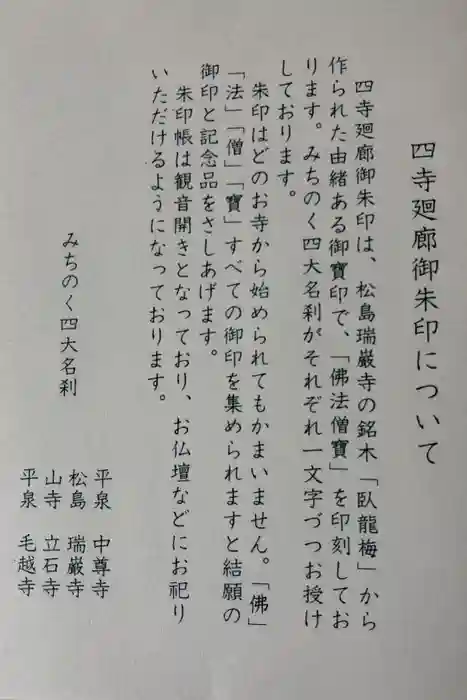 四寺廻廊御朱印について
四寺廻廊御朱印は、松島瑞巌寺の銘木「臥龍梅」から
作られた由緒ある御寶印で、「佛法僧寶」を印刻してお
ります。みちのく四大名刹がそれぞれ一文字づつお授け
しております。
朱印はどのお寺から始められてもかまいません。「佛」
「法」「僧」「寶」すべての御印を集められますと結願の
御印と記念品をさしあげます。
朱印帳は観音開きとなっており、お仏壇などにお祀り
いただけるようになっております。
みちのく四大名刹
平泉 中尊寺
松島 瑞巌寺
山寺 立石寺
平泉 毛越寺